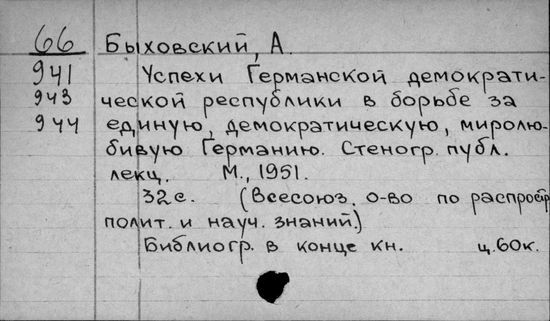 66 Быховский, А.
941 Успехи Германской демократи-
943 ческой республики в борьбе за
944 единую, демократическую, миролю-
бивую Германию. Стеногр. публ.
лекц. М., 1951.
32с. (Всесоюз. о-во по распростр
полит. и науч. знаний.)
Библиогр. в конце кн. ц. 60к.